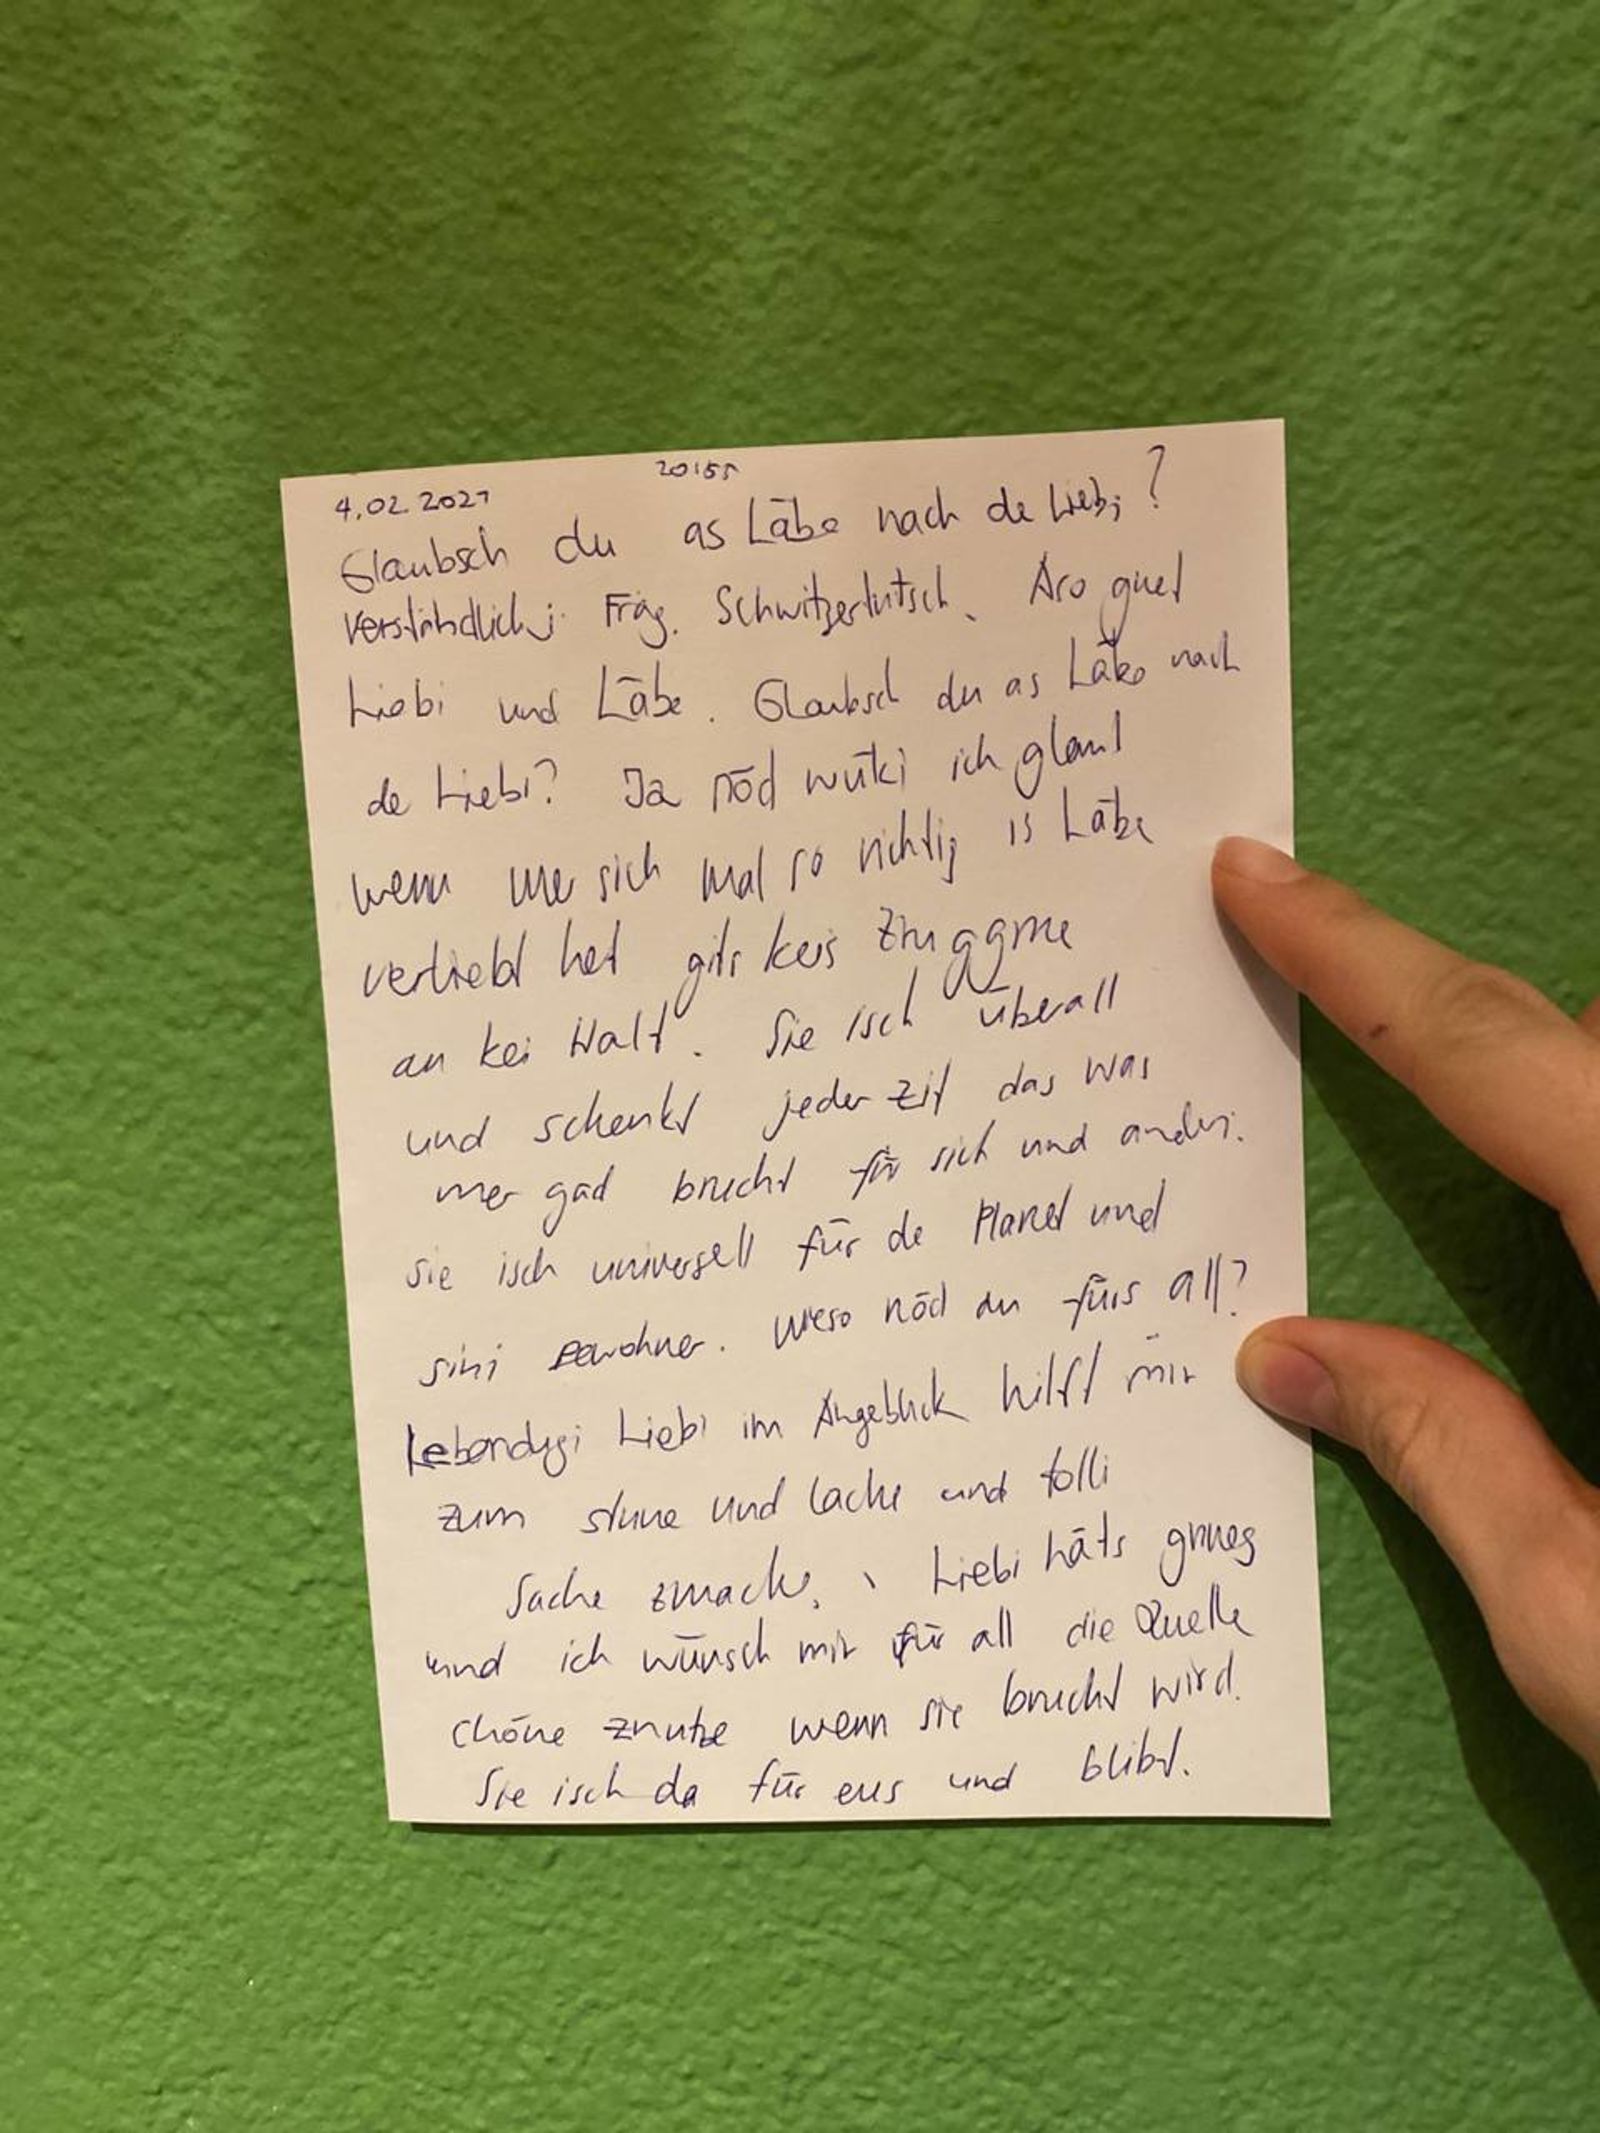 4.02.2021 20155
Glaubsch du as Läbe nach de Liebi?
verständlichi Frag. Schwitzertütsch. Aso guet
Liebi und Läbe. Glaubsch du as Läbe nach
de Liebi? Ja nöd würki ich glaub
wenn mer sich mal so richtig is Läbe
verliebt het gits keis Zrugg me
an kei Halt. Sie isch überall
und schenkt jeder Zit das was
mer gad brucht für sich und anderi.
sie isch universell für de Planet und
sini Bewohner. Wieso nöd au fürs all?
Lebendigi Liebi im Augeblick hilft mir
zum stune und lache und tolli
Sache zmache. Liebi häts gnueg
und ich wünsch mir für all die Quelle
chöne znutze wenn sie brucht wird.
Sie isch da für eus und blibt.